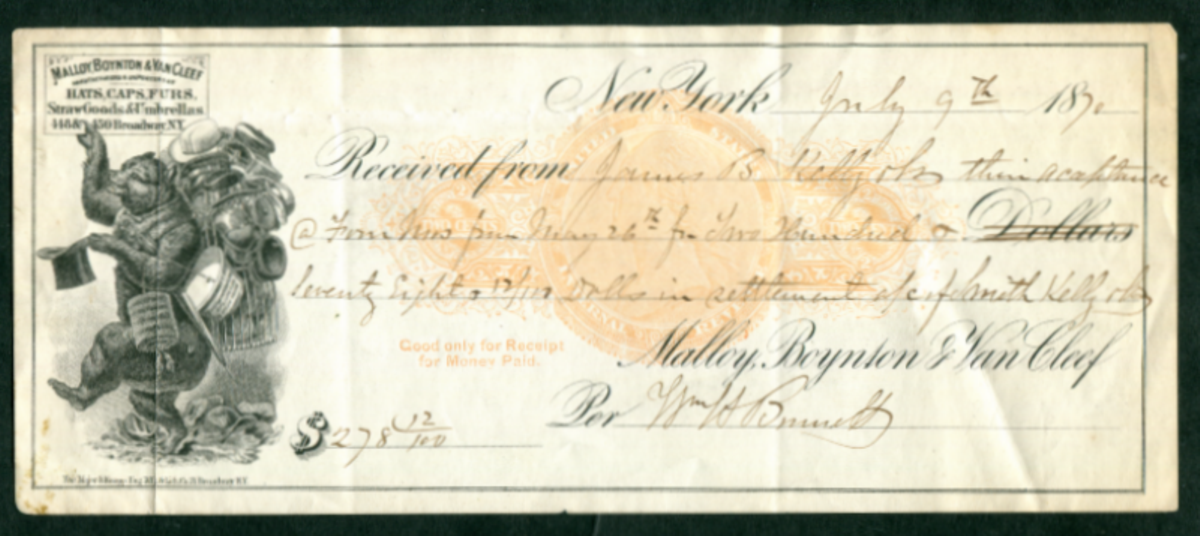 MALLOY, BOYNTON & VAN CLEEF
HATS, CAPS, FURS,
Straw Goods & Umbrellas
448 & 450 Broadway N.Y.
New York July 9th 1870
Received from James B Kellogg acceptance
@ Four Mos from May 26th for Two Hundred & Dollars
Seventy Eight & 12/100 Dolls in settlement a/c of Smith Kellogg
Good only for Receipt
for Money Paid.
Malloy, Boynton & Van Cleef
Per Wm H
$ 278 12/100